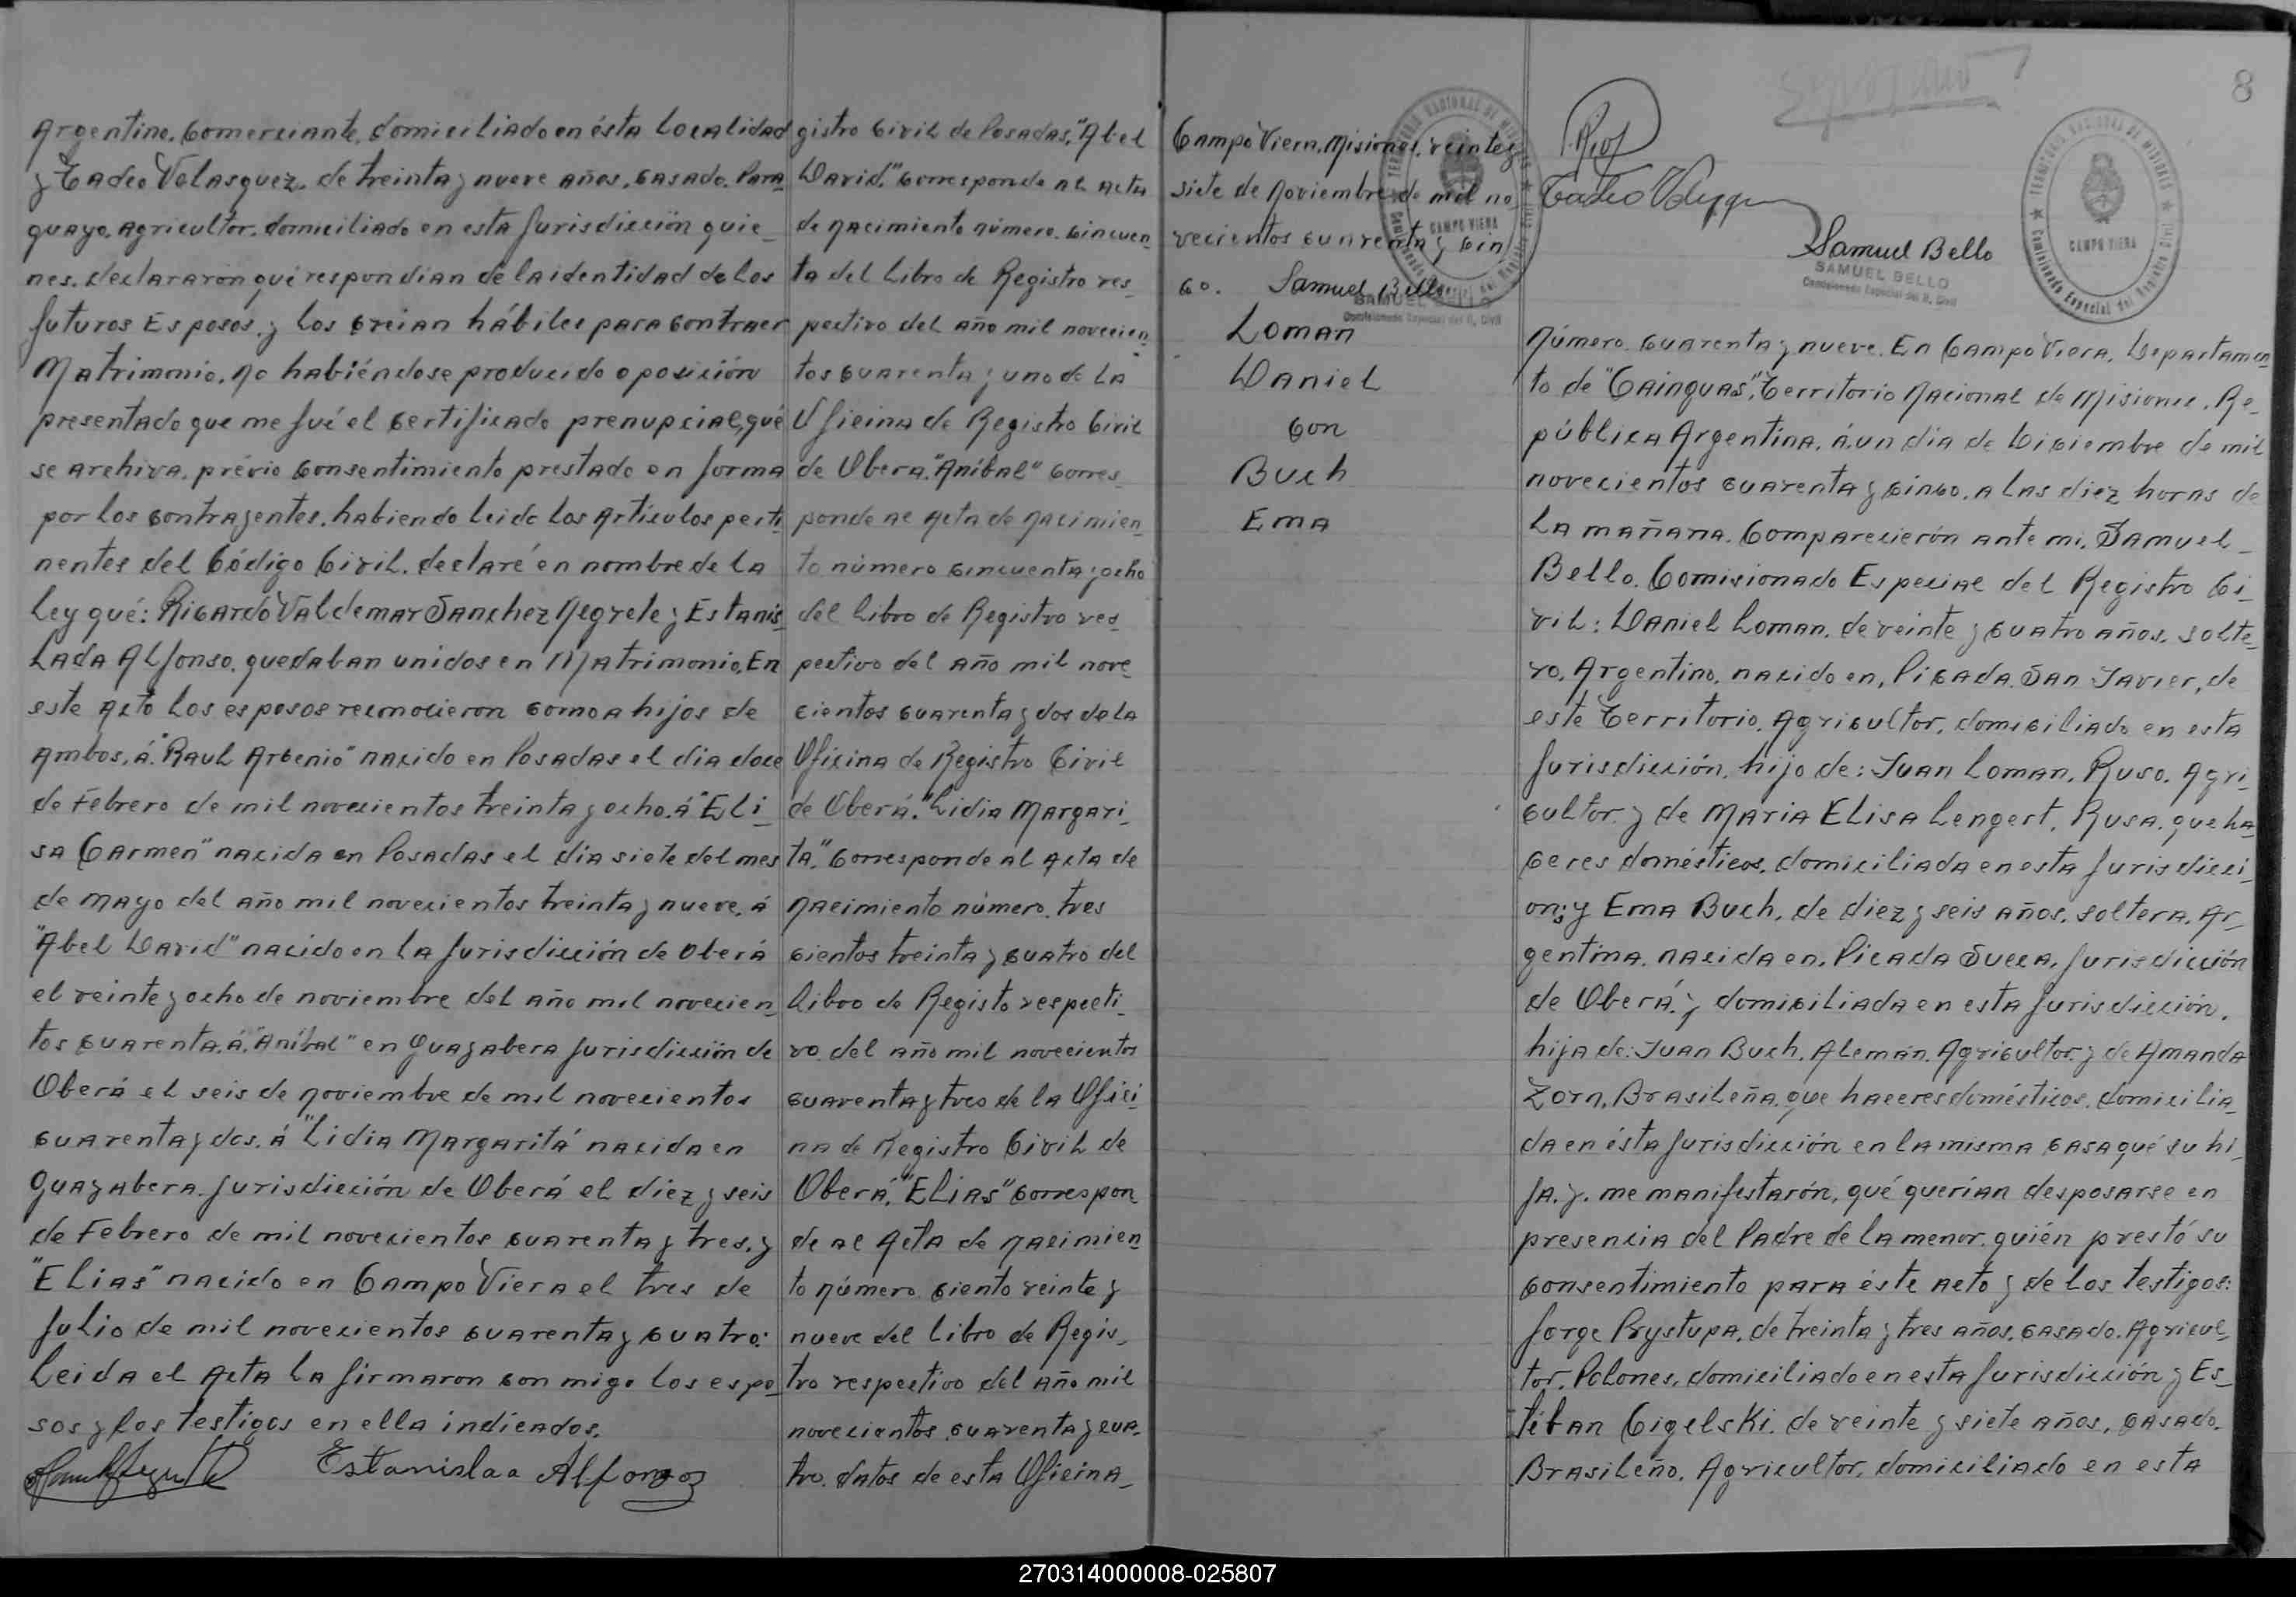 Argentino. Comerciante, domiciliado en ésta Localidad
y Tadeo Velasquez, de treinta y nueve años, casado. Para-
guayo. Agricultor. domiciliado en esta Jurisdicción quie-
nes. declararón qué respondian de la identidad de los
futuros Esposos. y los creian hábiles para contraer
Matrimonio. No habiéndose producido oposición
presentado que me fué el certificado prenupcial, qué
se archiva. prévio consentimiento prestado en forma
por los contrayentes. habiendo leido los Artículos perti-
nentes del Código Civil. declaré en nombre de la
Ley qué: Ricardo Valdemar Sanchez Negrete y Estanis-
lada Alfonso. quedaban unidos en Matrimonio. En
este Acto los esposos reconocieron como a hijos de
Ambos, á "Raul Arcenio" nacido en Posadas el dia doce
de Febrero de mil novecientos treinta y ocho. á "Eli-
sa Carmen" nacida en Posadas el día siete del mes
de Mayo del año mil novecientos treinta y nueve. á
"Abel David" nacido en la Jurisdicción de Oberá
el veinte y ocho de noviembre del año mil novecien-
tos cuarenta. á. "Aníbal" en Guayabera Jurisdicción de
Oberá el seis de Noviembre de mil novecientos
cuarenta y dos. á "Lidia Margarita" nacida en
Guayabera. Jurisdicción de Oberá el diez y seis
de Febrero de mil novecientos cuarenta y tres. y
"Elias" nacido en Campo Viera el tres de
Julio de mil novecientos cuarenta y cuatro:
Leida el Acta la firmaron conmigo los espo-
sos y los testigos en ella indicados.
Estanislaa Alfonzo
gistro Civil de Posadas. "Abel
David." corresponde al Acta
de Nacimiento número. cincuen-
ta del Libro de Registro res-
pectivo del año mil novecien-
tos cuarenta y uno de la
Oficina de Registro Civil
de Obera. "Aníbal" corres-
ponde al Acta de Nacimien-
to número cincuenta y ocho
del Libro de Registro res-
pectivo del año mil nove-
cientos cuarenta y dos de la
Oficina de Registro Civil
de Oberá. "Lidia Margari-
ta." corresponde al Acta de
Nacimiento número. tres
cientos treinta y cuatro del
Libro de Registo respecti-
vo. del año mil novecientos
cuarenta y tres de la Ofici-
na de Registro Civil de
Oberá. "Elias" correspon
de al Acta de Nacimien-
to Número ciento veinte y
nueve del libro de Regis-
tro respectivo del año mil
novecientos cuarenta y cua-
tro. datos de esta Oficina-
Campo Viera. Misiones. veinte y
siete de Noviembre de mil no-
vecientos cuarenta y cin
co. Samuel Bello
SAMUEL BELLO
Comisionado Especial del R. Civil
CAMPO VIERA
Loman
Daniel
con
Buch
Ema
8
Tadeo Velazquez
Samuel Bello
SAMUEL BELLO
Comisionado Especial del R. Civil
TERRITORIO NACIONAL DE MISIONES
CAMPO VIERA
Comisionado Especial del Registro Civil
Número. cuarenta y nueve. En Campo Viera, Departamen-
to de "Cainguas", Territorio Nacional de Misiones. Re-
pública Argentina. á un dia de Diciembre de mil
novecientos cuarenta y cinco. a las diez horas de
La mañana. Comparecierón ante mi. Samuel-
Bello. Comisionado Especial del Registro Ci-
vil: Daniel Loman. de veinte y cuatro años. solte-
ro. Argentino. nacido en, Picada. San Javier, de
este Territorio. Agricultor. domiciliado en esta
Jurisdicción. hijo de: Juan Loman. Ruso. Agri-
cultor. y de Maria Elisa Lengert. Rusa. que ha-
ceres domésticos. domiciliada en esta Jurisdicci-
on; y Ema Buch, de diez y seis años. soltera. Ar-
gentina. nacida en. Picada Sueca. Jurisdicción
de Oberá. y domiciliada en esta Jurisdicción.
hija de: Juan Buch. Alemán. Agricultor. y de Amanda
Zorn. Brasileña. que haceres domésticos. domicilia-
da en ésta Jurisdicción en la misma casa qué su hi-
ja. y. me manifestarón, qué querían desposarse en
presencia del Padre de la menor. quién prestó su
consentimiento para éste acto y de los testigos:
Jorge Prystupa. de treinta y tres años. casado. Agricul-
tor. Polones. domiciliado en esta Jurisdicción y Es-
téban Cigelski. de veinte y siete años. casado.
Brasileño. Agricultor. domiciliado en esta
270314000008-025807